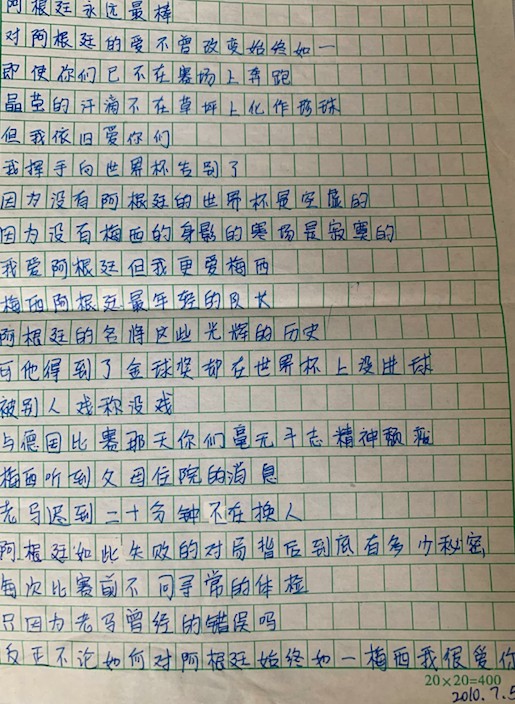 阿根廷永远最棒
对阿根廷的爱不曾改变始终如一
即使你们已不在赛场上奔跑
晶莹的汗滴不在草坪上化作珍珠
但我依旧爱你们
我挥手向世界杯告别了
因为没有阿根廷的世界杯是空虚的
因为没有梅西的身影的赛场是寂寞的
我爱阿根廷但我更爱梅西
梅西阿根廷最年轻的队长
阿根廷的名将这些光辉的历史
可他得到了金球奖却在世界杯上没进球
被别人戏称没戏
与德国比赛那天你们毫无斗志精神颓
梅西听到父因住院的消息
老马迟到二十分钟不在换人
阿根廷如此失败的对局背后到底有多少秘密
每次比赛前不同寻常的体检
只因为老马曾经的错误吗
反正不论如何对阿根廷始终如一梅西我很爱你
20×20=400
2010.7.5